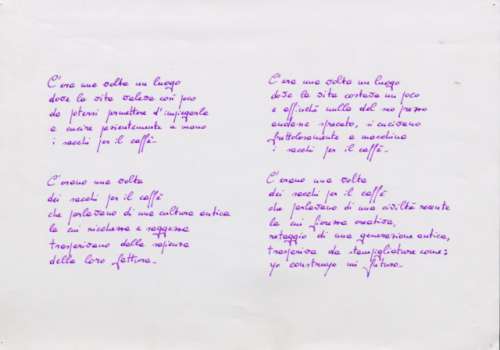 C'era una volta un luogo
dove la vita valeva così poco
da potersi permettere d'impiegarla
a cucire pazientemente a mano
i sacchi per il caffè.
C'erano una volta
dei sacchi per il caffè
che parlavano di una cultura antica
la cui ricchezza e saggezza
trasparivano dalla sapienza
della loro fattura.
C'era una volta un luogo
dove la vita costava un poco
e affinché nulla del suo prezzo
andasse sprecato, si cucivano
frettolosamente a macchina
i sacchi per il caffè.
C'erano una volta
dei sacchi per il caffè
che parlavano di una civiltà recente
la cui fierezza creativa,
retaggio di una generazione antica,
traspariva da stampigliature come:
yo construyo mi futuro.